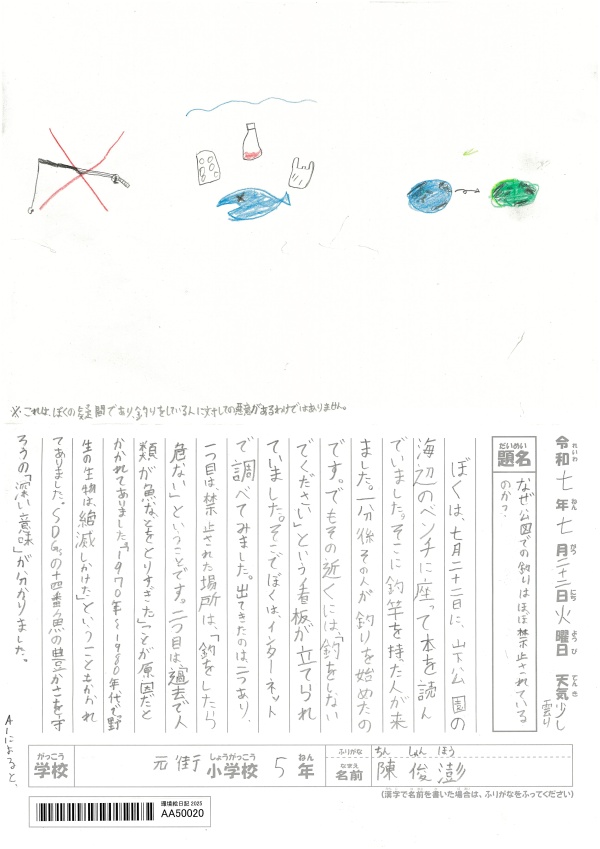 ※これは、ぼくの疑問であり、釣りをしている人に対しての悪意があるわけではありません。
令和七年七月二十二日火曜日 天気 少し曇り
れいわ ねん がつ にち ようび てんき
だいめい
題名
なぜ公園での釣りはほぼ禁止されている
のか?
ぼくは、七月二十二日に、山下公園の
海辺のベンチに座って本を読ん
でいました。そこに釣竿を持った人が来
ました。一分後その人が釣りを始めたの
です。でもその近くには、「釣をしない
でください」という看板が立てられ
ていました。そこでぼくは、インターネット
で調べてみました。出てきたのは二つあり、
一つ目は、禁止された場所は、「釣をしたら
危ない」ということです。二つ目は、「過去で人
類が魚などをとりすぎた」ことが原因だと
かかれてありました。「1970年〜1980年代で、野
生の生物は、絶滅しかけた」ということもかかれ
てありました。SDGsの十四番「魚の豊かさを守
ろう」の「深い意味」が分かりました。
AIによると、
がっこう
学校
元街 小学校 5年
しょうがっこう ねん
ふりがな ちん しょん ほう
なまえ
名前 陳 俊澎
(漢字で名前を書いた場合は、ふりがなをふってください)
環境絵日記 2025
AA50020